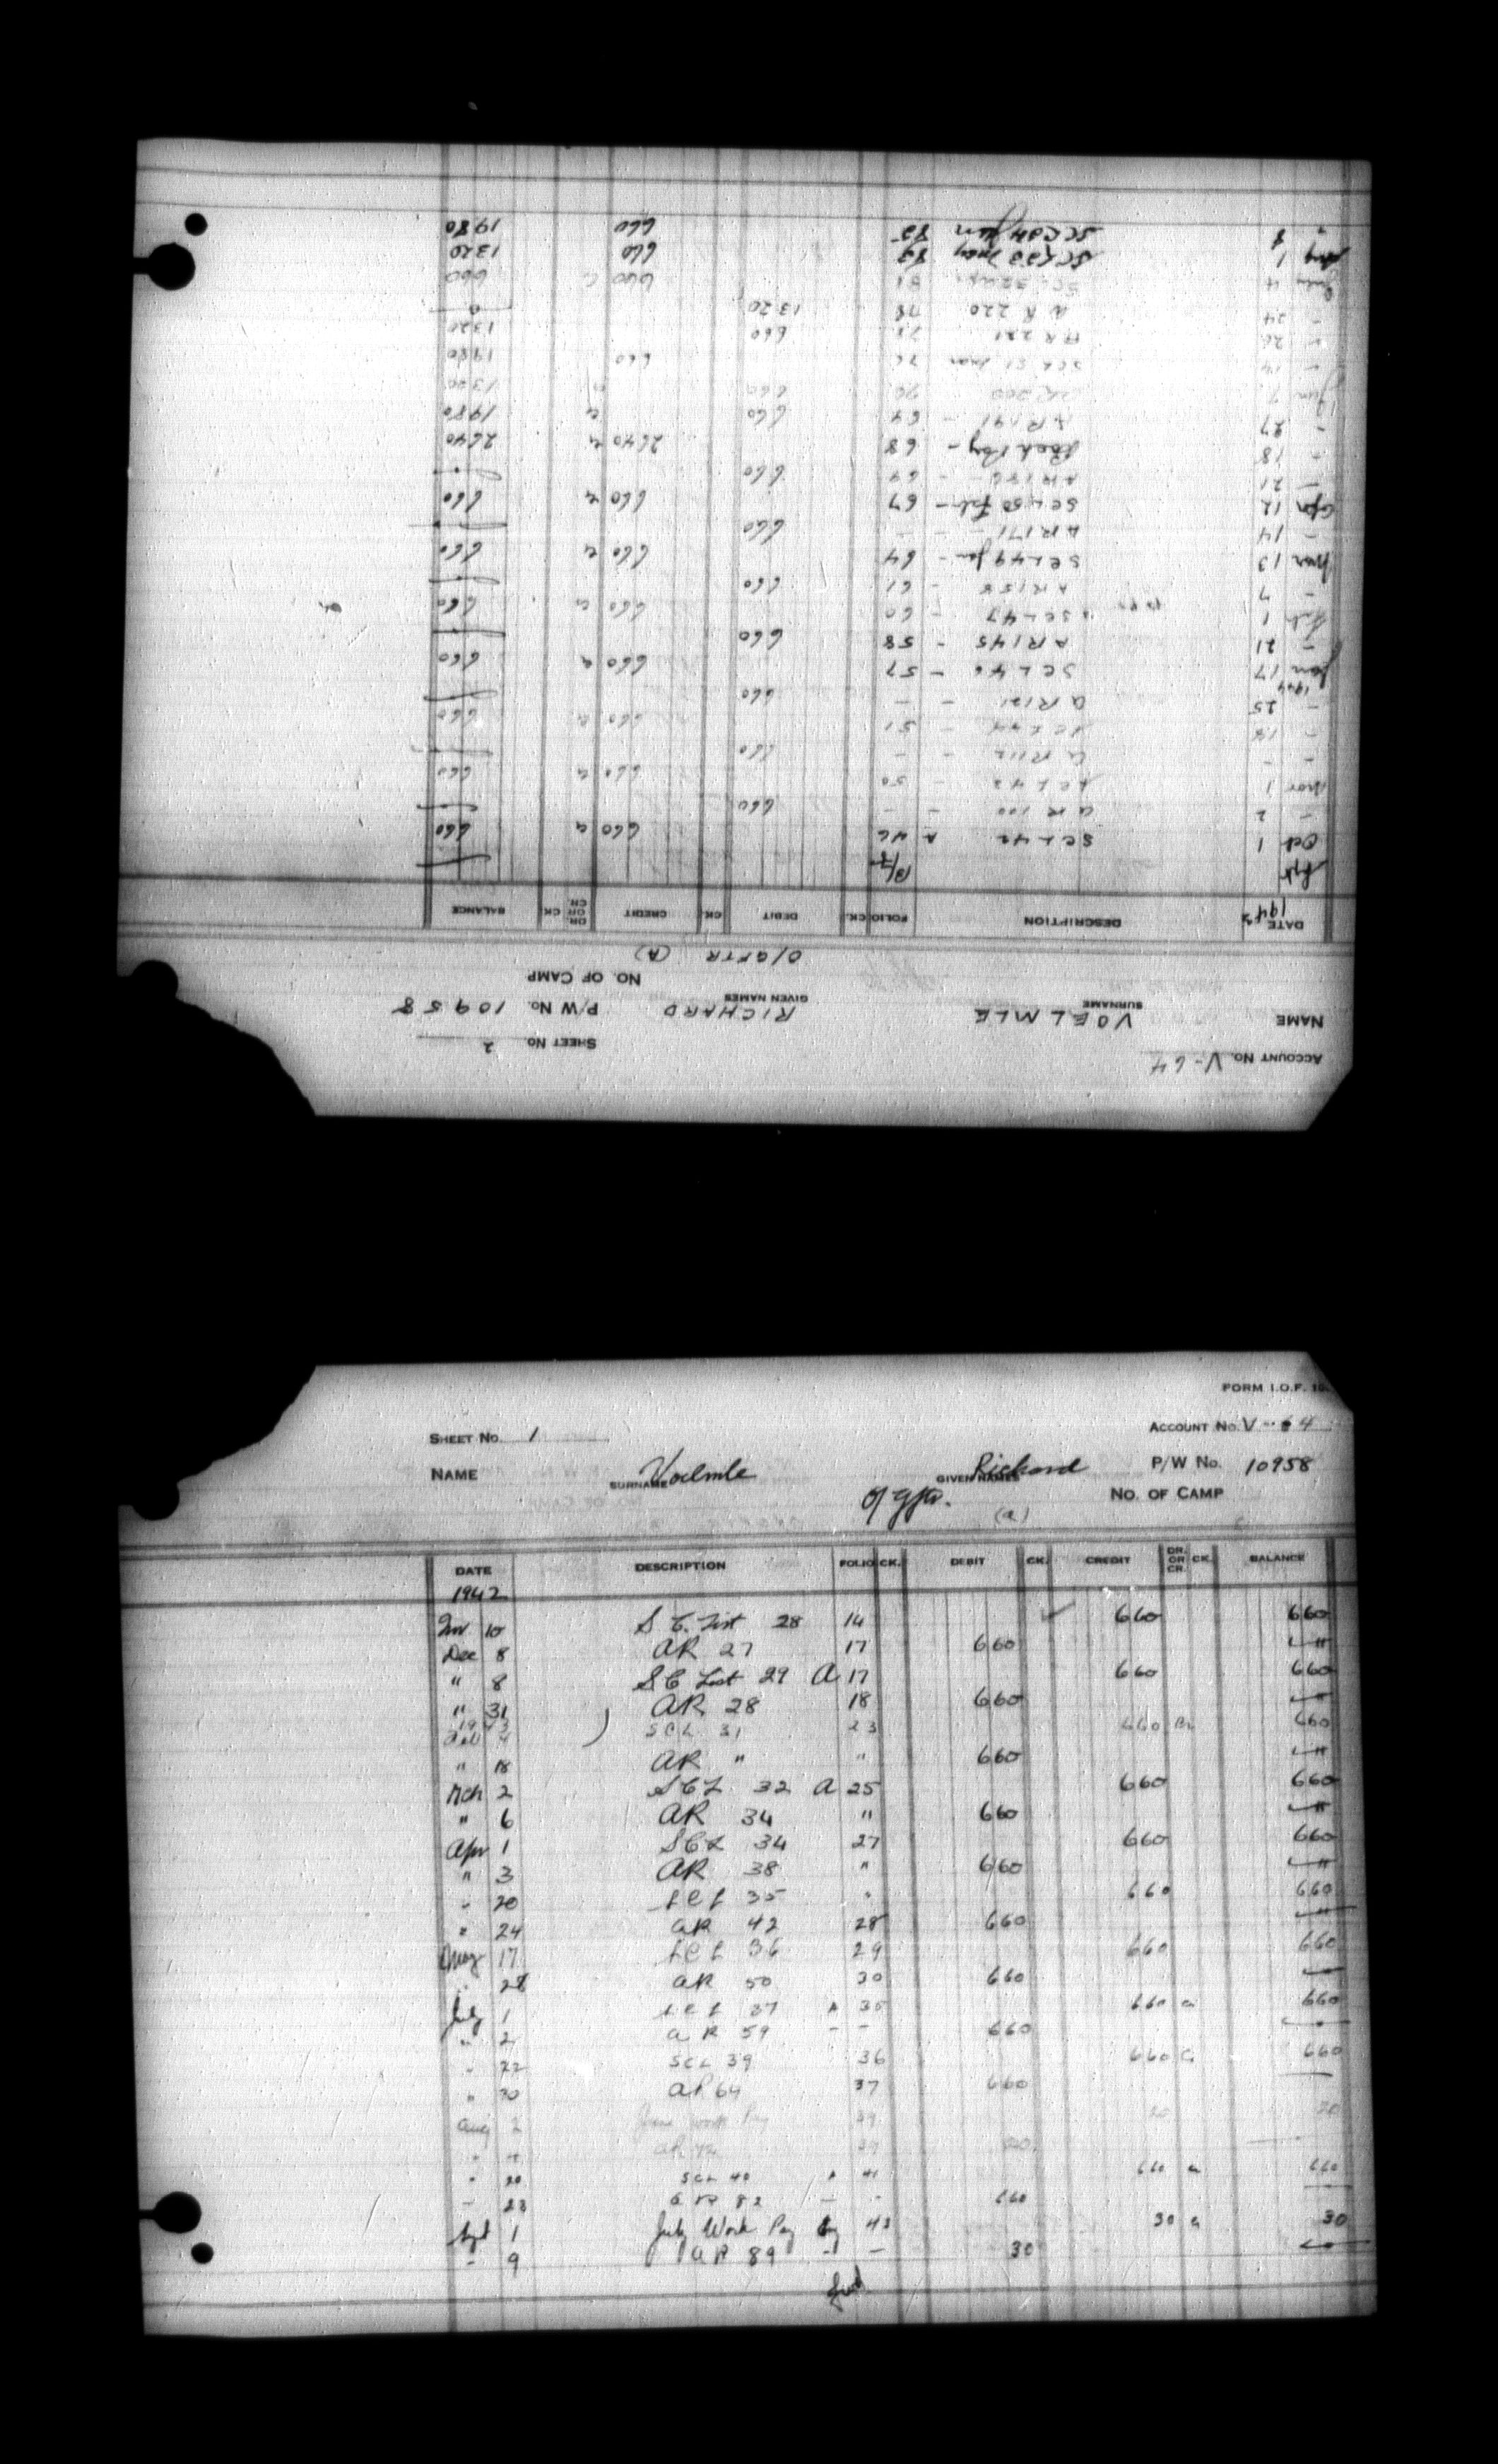 FORM I.O.F.
SHEET NO. 1 ACCOUNT NO. V-64
NAME Voelmle Richard P/W No. 10958
SURNAME GIVEN NAMES
NO. OF CAMP
(a)
DATE DESCRIPTION FOLIO CK. DEBIT CK. CREDIT DR. OR CR. CK. BALANCE
1942
10 28 14 660 660
Dec 8 AR 27 17 660
" 8 29 A 17 660 660
" 31 AR 28 18 660
SCL 31 23 660 660
" 18 AR " " 660
Mch 2 SCL 32 A 25 660 660
" 6 AR 34 " 660
Apr 1 SCL 34 27 660 660
" 3 AR 38 " 660
" 20 SCL 35 " 660 660
" 24 AR 42 28 660
May 17 SCL 36 29 660 660
" 28 AR 50 30 660
July 1 SCL 37 A 35 660 a 660
" 2 AR 59 - - 660
" 22 SCL 39 36 660 660
" 30 AR 64 37 660
Aug 2 Work Pay
" 20 SCL 40 A 41 660 a 660
- 23 AR 82 - - 660
Sept 1 July Work Pay 43 30 a 30
- 9 AR 89 - - 30
ACCOUNT NO. V-64
SHEET NO. 2
NAME VOELMLE RICHARD P/W No. 10958
SURNAME GIVEN NAMES
NO. OF CAMP
O/GFTR (A)
DATE DESCRIPTION FOLIO CK. DEBIT CK. CREDIT DR. OR CR. CK. BALANCE
1943
Sept B/F
Oct 1 SCL 42 A 46 660 a 660
- 2 AR 100 - - 660
Nov 1 SCL 43 - 50 660 a 660
- - AR 112 - - 660
- 18 SCL 44 - 51 660 a 660
- 25 AR 121 - - 660
1944
Jan 17 SCL 46 - 57 660 a 660
- 21 AR 145 - 58 660
Feb 1 SCL 47 - 60 660 a 660
- 7 AR 158 - 61 660
Mar 13 SCL 49 Jan - 64 660 a 660
- 14 AR 171 - - 660
Apr 12 SCL 50 Feb - 67 660 a 660
- 21 AR 186 - 660
- 18 Back Pay - 68 2640 a 2640
- 27 AR 191 - 69 660 a 1980
7 AR 200 660 1320
- 14 SCL 51 Mar 76 660 1980
- 20 AR 221 660 1320
- 24 AR 220 78 1320 0
4 81 660 660
1 May 660 1320
" 8 660 1980